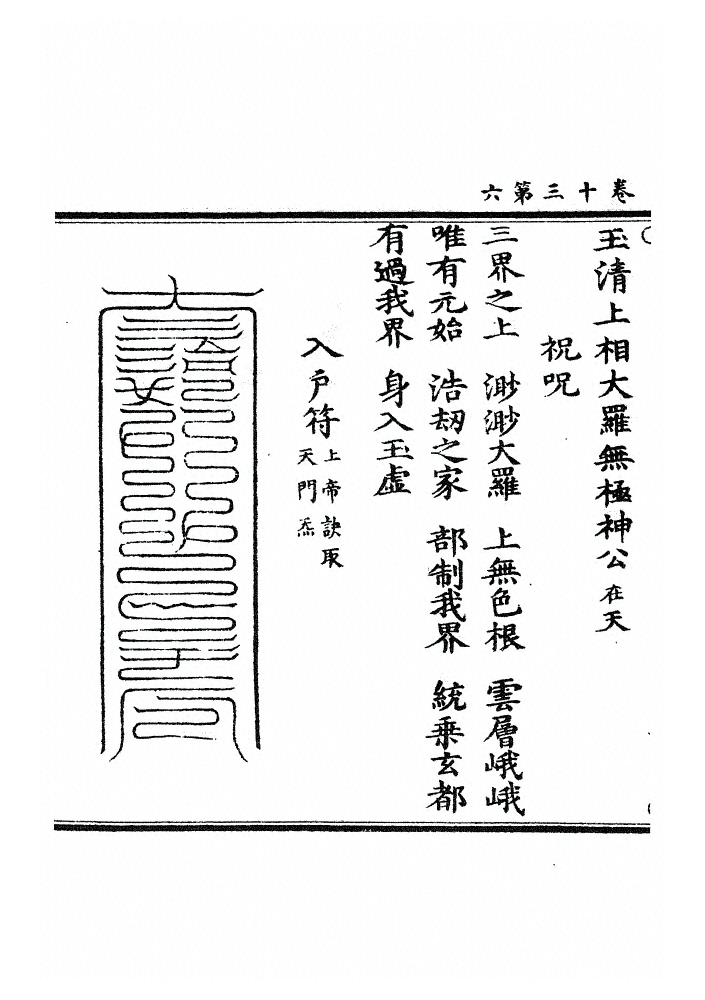 卷十三第六
玉清上相大羅無極神公在天
祝呪
三界之上 渺渺大羅 上無色根 雲層峨峨
唯有元始 浩劫之家 部制我界 統乗玄都
有過我界 身入玉虛
入戶符上帝訣取
天門炁